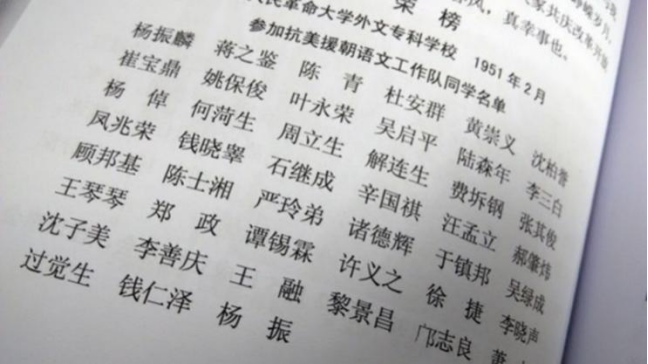 真幸事也。
荣 榜
民革命大学外文专科学校 1951年2月
参加抗美援朝语文工作队同学名单
杨振麟 蒋之鉴 陈 青 杜安群 黄崇义 沈柏誉
崔宝鼎 姚保俊 叶永荣 吴启平 陆森年 李三白
杨 倬 何菏生 周立生 解连生 费坼钢 张其俊
凤兆荣 钱晓睾 石继成 辛国祺 汪孟立 郝肇炜
顾邦基 陈士湘 严玲弟 诸德辉 于镇邦 吴绿成
王琴琴 郑 政 谭锡霖 许义之 徐 捷 李晓声
沈子美 李善庆 王 融 黎景昌 邝志良
过觉生 钱仁泽 杨 振